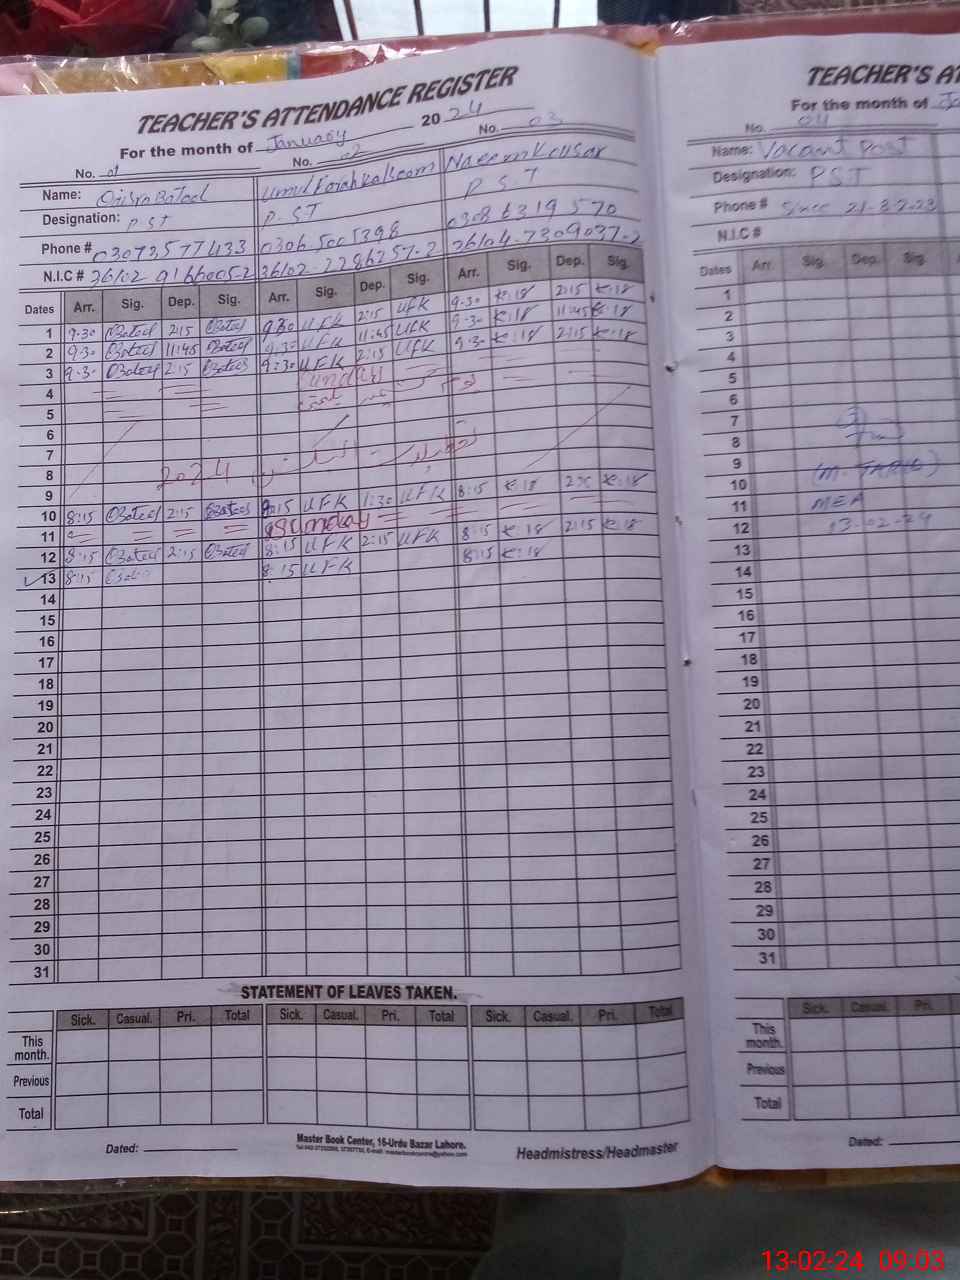 TEACHER'S ATTENDANCE REGISTER
For the month of January 2024
No. 01 No. 02 No. 03
Name: Batool Naeem Kousar
Designation: P.ST P.ST P.S.T
Phone # 03073577433 0306.5005398 0308 6319 570
N.I.C # 36102 36102-2286257-2 36104-7309037-2
Dates Arr. Sig. Dep. Sig. Arr. Sig. Dep. Sig. Arr. Sig. Dep. Sig.
1 9.30 Batool 2:15 Batool 9:30 UFK 2:15 UFK 9.30 2:15
2 9.30 Batool 11:45 Batool 9:30 UFK 11:45 UFK 9.30 11:45
3 9.30 Batool 2:15 Batool 9:30 UFK 2:15 UFK 9.30 2:15
4 Sunday
5
6
7
8 2024
9
10 8:15 Batool 2:15 Batool 8:15 UFK 1:30 UFK 8:15
11 Sunday
12 8:15 Batool 2:15 Batool 8:15 UFK 2:15 UFK 8:15 2:15
13 8:15 8:15 UFK 8:15
14
15
16
17
18
19
20
21
22
23
24
25
26
27
28
29
30
31
STATEMENT OF LEAVES TAKEN.
Sick. Casual. Pri. Total Sick. Casual. Pri. Total Sick. Casual. Pri. Total
This month.
Previous
Total
Dated:
Master Book Center, 16-Urdu Bazar Lahore.
Headmistress/Headmaster
TEACHER'S AT
For the month of Ja
No. 04
Name: Vacant Post
Designation: PST
Phone # Since
N.I.C #
Dates Arr. Sig. Dep. Sig.
1
2
3
4
5
6
7
8
9 (M. TARIQ)
10
11 MEA
12 13-02-24
13
14
15
16
17
18
19
20
21
22
23
24
25
26
27
28
29
30
31
Sick. Casual. Pri.
This month.
Previous
Total
Dated:
13-02-24 09:03